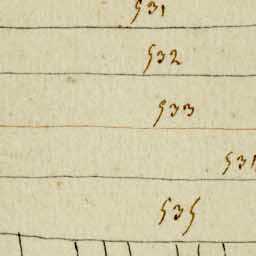 531
532
533
535